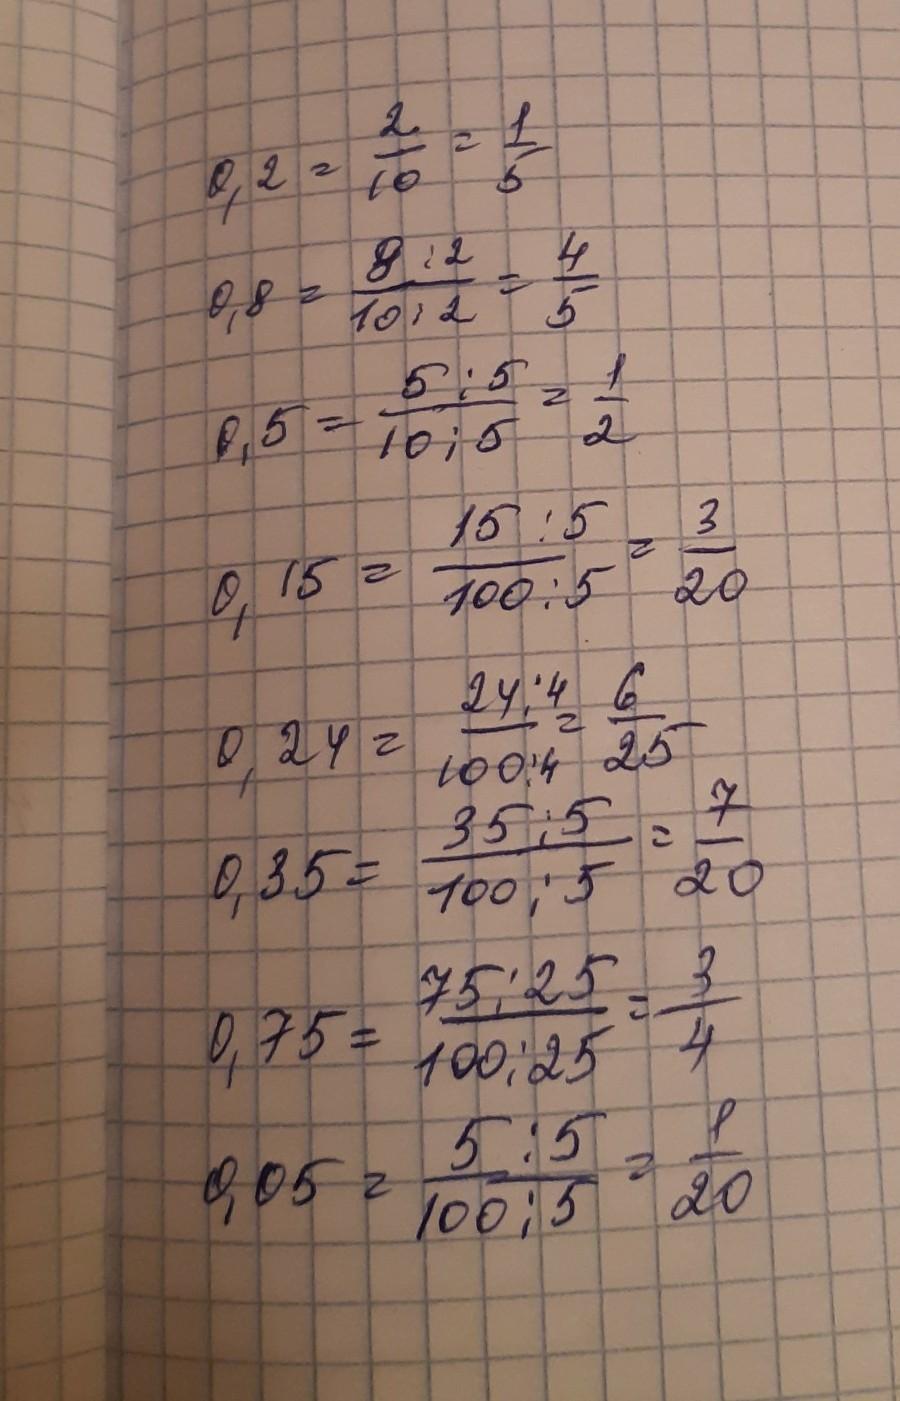 0,2 = 2/10 = 1/5
0,8 = 8:2/10:2 = 4/5
0,5 = 5:5/10:5 = 1/2
0,15 = 15:5/100:5 = 3/20
0,24 = 24:4/100:4 = 6/25
0,35 = 35:5/100:5 = 7/20
0,75 = 75:25/100:25 = 3/4
0,05 = 5:5/100:5 = 1/20